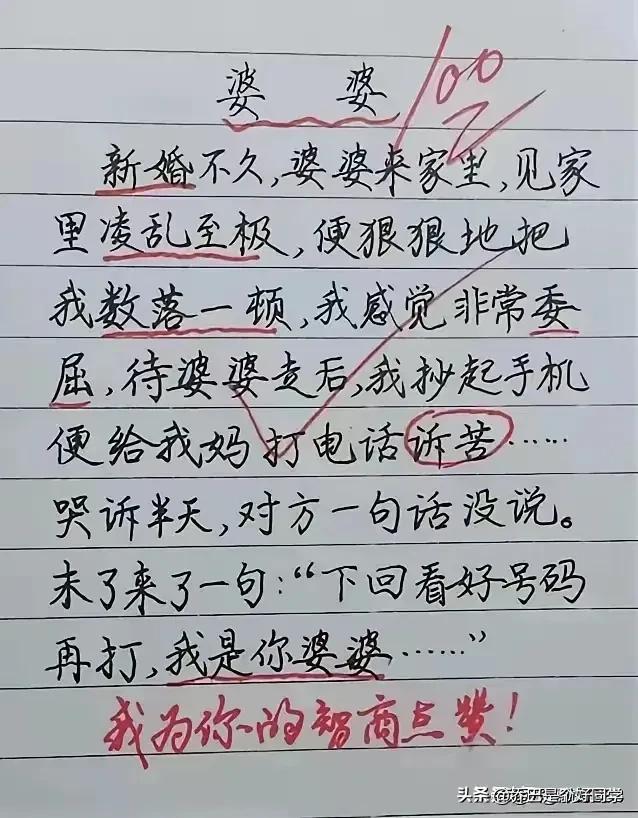 婆 婆
100
新婚不久,婆婆来家里,见家
里凌乱至极,便狠狠地把
我数落一顿,我感觉非常委
屈,待婆婆走后,我抄起手机
便给我妈打电话诉苦……
哭诉半天,对方一句话没说。
末了来了一句:“下回看好号码
再打,我是你婆婆……”
我为你的智商点赞!
头条